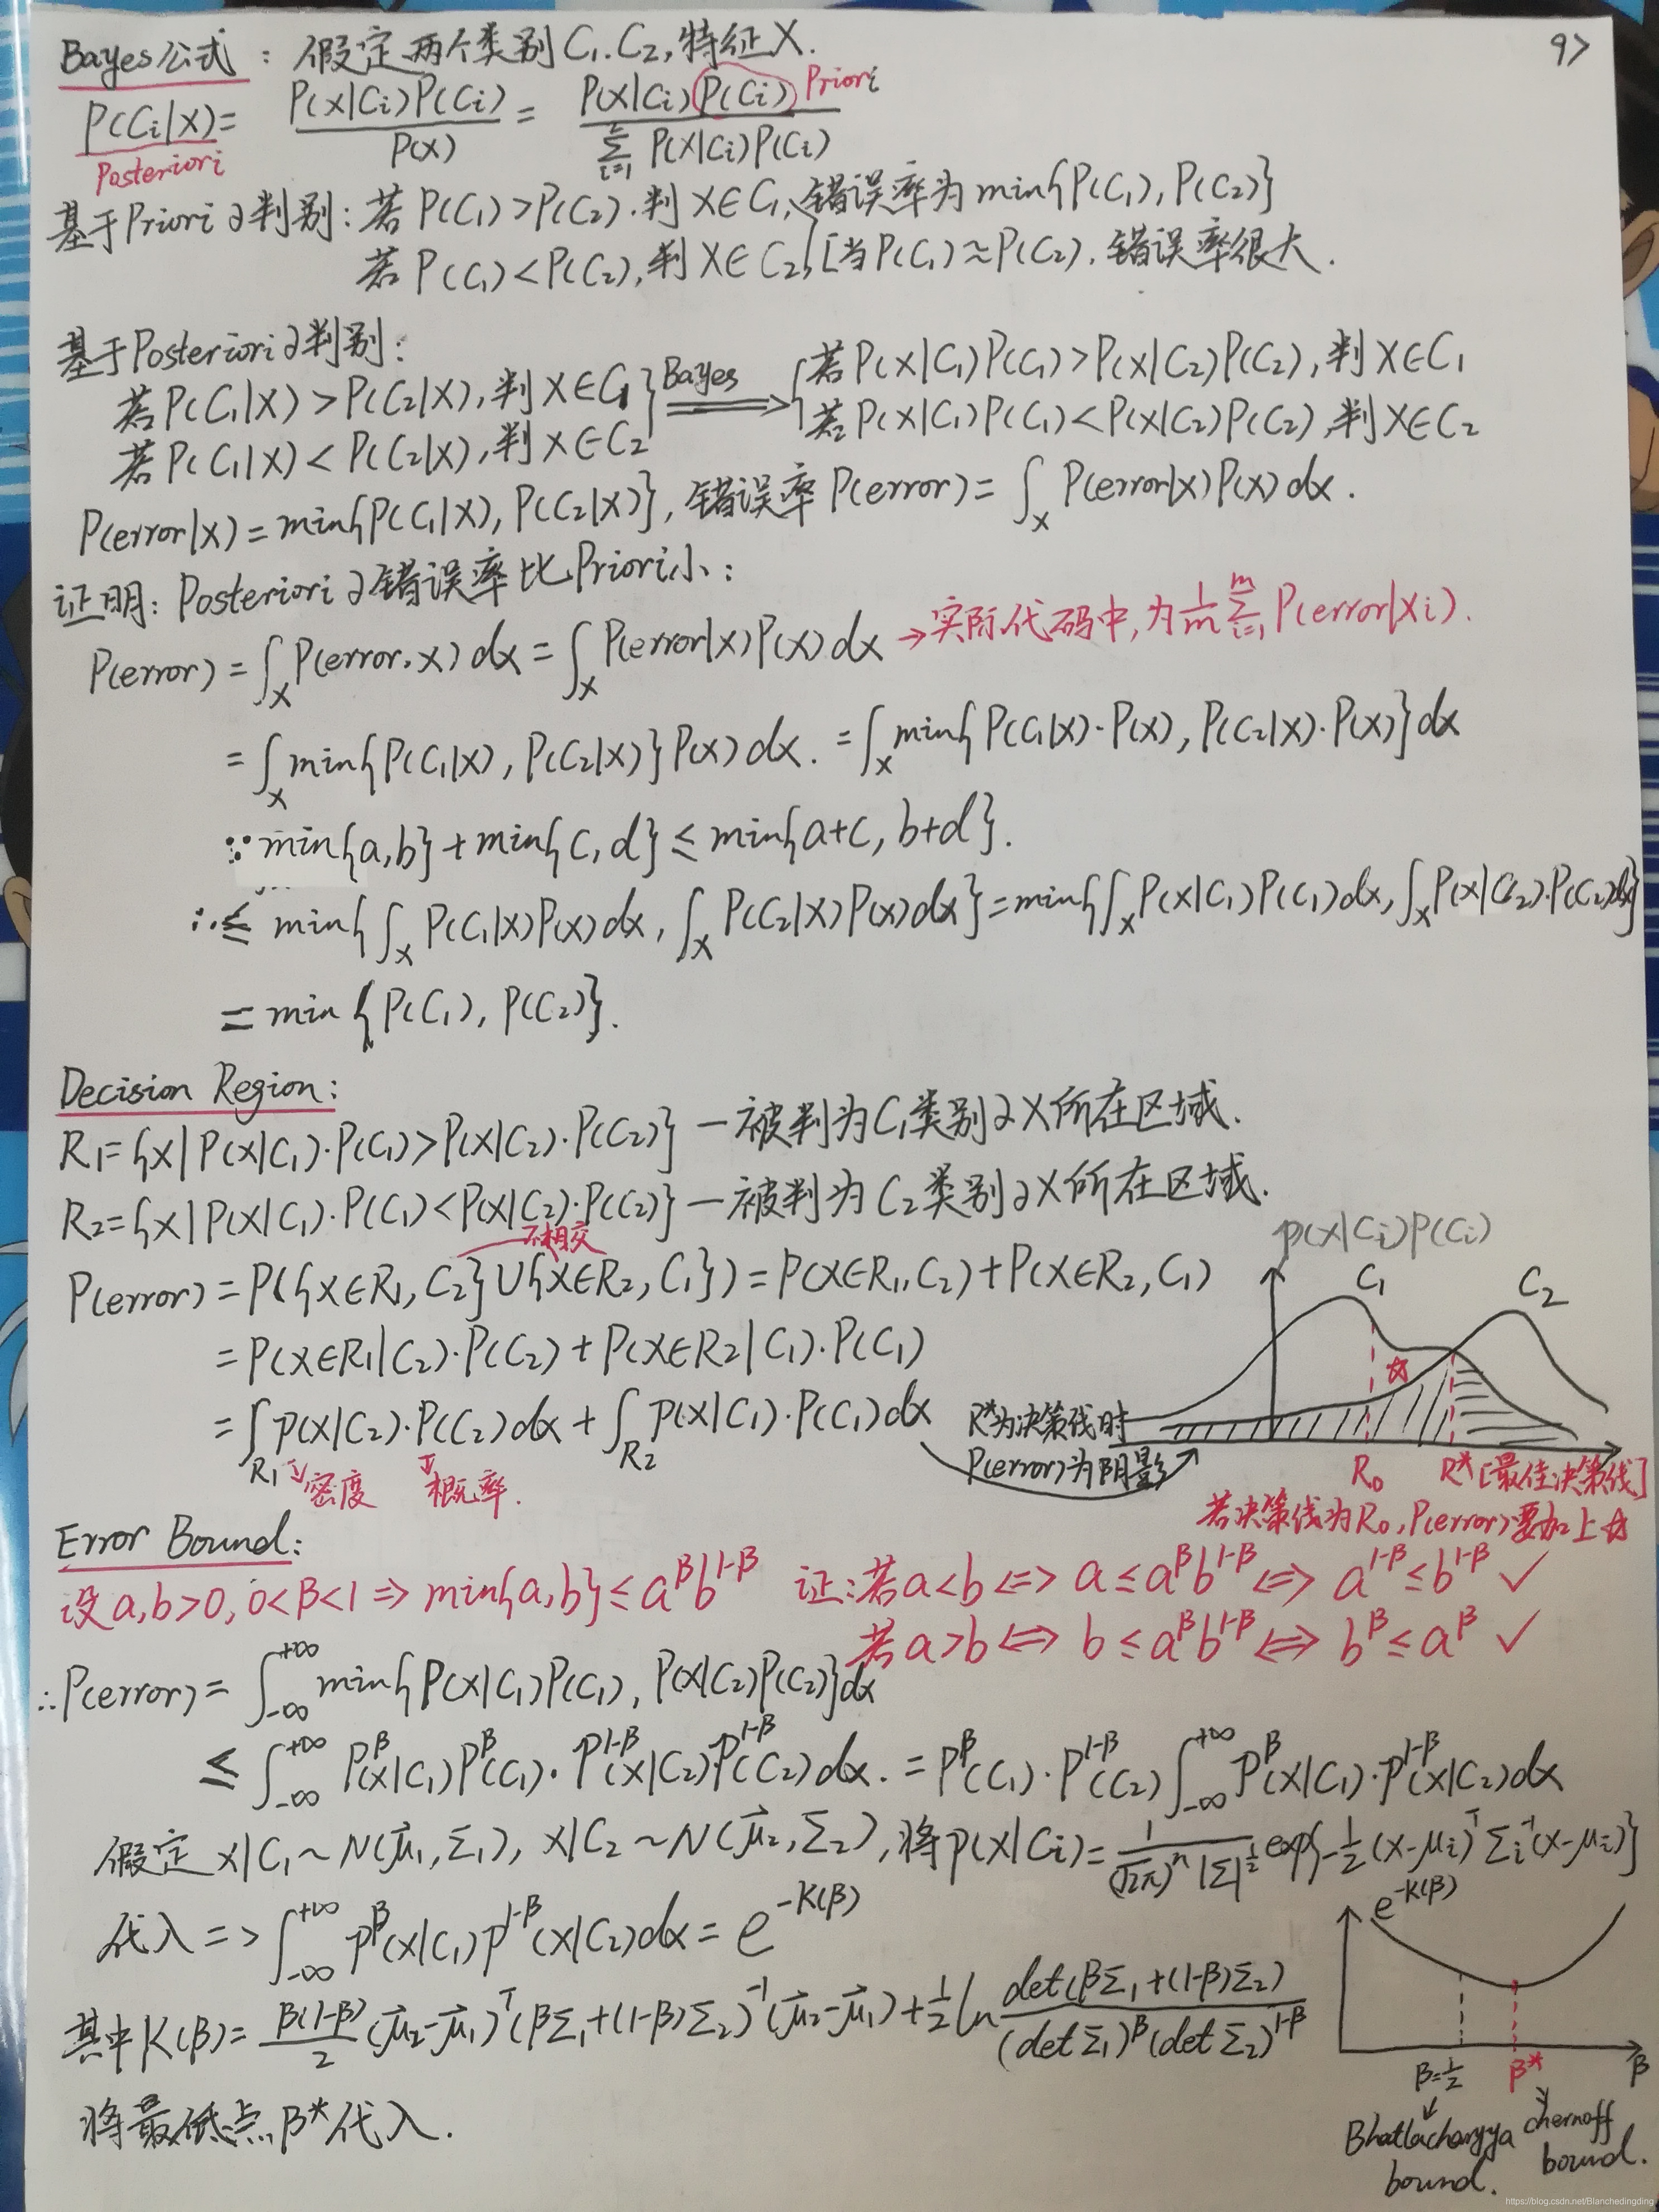 9>
Bayes公式：假定两个类别C₁.C₂,特征X.
P(Cᵢ|X) = P(X|Cᵢ)P(Cᵢ) / P(X) = P(X|Cᵢ)P(Cᵢ) / Σᵢ₌₁² P(X|Cᵢ)P(Cᵢ) Priori
Posteriori
基于Priori的判别：若P(C₁)>P(C₂).判X∈C₁,错误率为min{P(C₁),P(C₂)}
若P(C₁)<P(C₂),判X∈C₂,[当P(C₁)≈P(C₂).错误率很大.
基于Posteriori的判别：
若P(C₁|X)>P(C₂|X),判X∈C₁ } Bayes ⟹ { 若P(X|C₁)P(C₁)>P(X|C₂)P(C₂),判X∈C₁
若P(C₁|X)<P(C₂|X),判X∈C₂ 若P(X|C₁)P(C₁)<P(X|C₂)P(C₂),判X∈C₂
P(error|X)=min{P(C₁|X),P(C₂|X)},错误率P(error)=∫_X P(error|X)P(X)dx.
证明：Posteriori的错误率比Priori小：
P(error)=∫_X P(error,x)dx=∫_X P(error|x)P(x)dx →实际代码中,为1/m Σᵢ₌₁ᵐ P(error|Xi).
=∫_X min{P(C₁|X),P(C₂|X)}P(X)dx.=∫_X min{P(C₁|X)·P(X),P(C₂|X)·P(X)}dx
∵min{a,b}+min{c,d}≤min{a+c,b+d}.
∴≤min{∫_X P(C₁|X)P(X)dx,∫_X P(C₂|X)P(X)dx}=min{∫_X P(X|C₁)P(C₁)dx,∫_X P(X|C₂).P(C₂)dx}
=min{P(C₁),P(C₂)}.
Decision Region:
R₁={X|P(X|C₁)·P(C₁)>P(X|C₂)·P(C₂)}—被判为C₁类别的X所在区域.
R₂={X|P(X|C₁)·P(C₁)<P(X|C₂)·P(C₂)}—被判为C₂类别的X所在区域.
不相交
P(error)=P({X∈R₁,C₂}∪{X∈R₂,C₁})=P(X∈R₁,C₂)+P(X∈R₂,C₁)
=P(X∈R₁|C₂)·P(C₂)+P(X∈R₂|C₁)·P(C₁)
=∫_R₁ p(x|C₂)·P(C₂)dx+∫_R₂ p(x|C₁)·P(C₁)dx
密度 概率.
p(x|Cᵢ)P(Cᵢ)
C₁ C₂
☆
R*为决策线时
P(error)为阴影
R₀ R*[最佳决策线]
若决策线为R₀,P(error)要加上☆
Error Bound:
设a,b>0,0<β<1⇒min{a,b}≤a^βb^(1-β) 证:若a<b⇔a≤a^βb^(1-β)⇔a^(1-β)≤b^(1-β) ✓
若a>b⇔b≤a^βb^(1-β)⇔b^β≤a^β ✓
∴P(error)=∫_{-∞}^{+∞} min{P(X|C₁)P(C₁),P(X|C₂)P(C₂)}dx
≤∫_{-∞}^{+∞} P^β(X|C₁)P^β(C₁)·P^(1-β)(X|C₂)P^(1-β)(C₂)dx.=P^β(C₁)·P^(1-β)(C₂)∫_{-∞}^{+∞} P^β(X|C₁)·P^(1-β)(X|C₂)dx
假定X|C₁~N(μ⃗₁,Σ₁),X|C₂~N(μ⃗₂,Σ₂),将p(X|Cᵢ)=1/((√2π)ⁿ|Σ|^½) exp{-½(x-μᵢ)ᵀΣᵢ⁻¹(x-μᵢ)}
代入=>∫_{-∞}^{+∞} p^β(x|C₁)p^(1-β)(x|C₂)dx=e^(-K(β))
其中K(β)=β(1-β)/2 (μ⃗₂-μ⃗₁)ᵀ(βΣ₁+(1-β)Σ₂)⁻¹(μ⃗₂-μ⃗₁)+½ln det(βΣ₁+(1-β)Σ₂)/((detΣ₁)^β(detΣ₂)^(1-β))
将最低点β*代入.
e^(-K(β))
β=½ β* β
Bhattacharyya bound.
chernoff bound.
https://blog.csdn.net/Blanchedingding